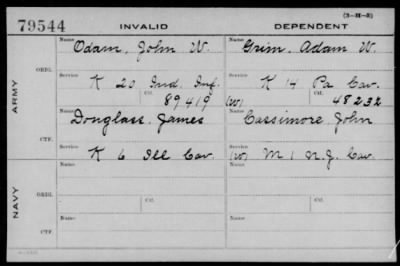 (3—H—2)
79544 INVALID DEPENDENT
Name Odam, John W. Name Grim, Adam W.
ORIG.
Service K 20 Ind. Inf. Service K 14 Pa Cav.
Ctf. 89419 (W) Ctf. 48232
ARMY
Name Donglass, James Name Cassimore, John
CTF.
Service K 6 Ill Cav. Service (W) M 1 N.J. Cav.
Name Name
ORIG.
NAVY
Service Ctf. Service Ctf.
Name Name
CTF.
Service Service